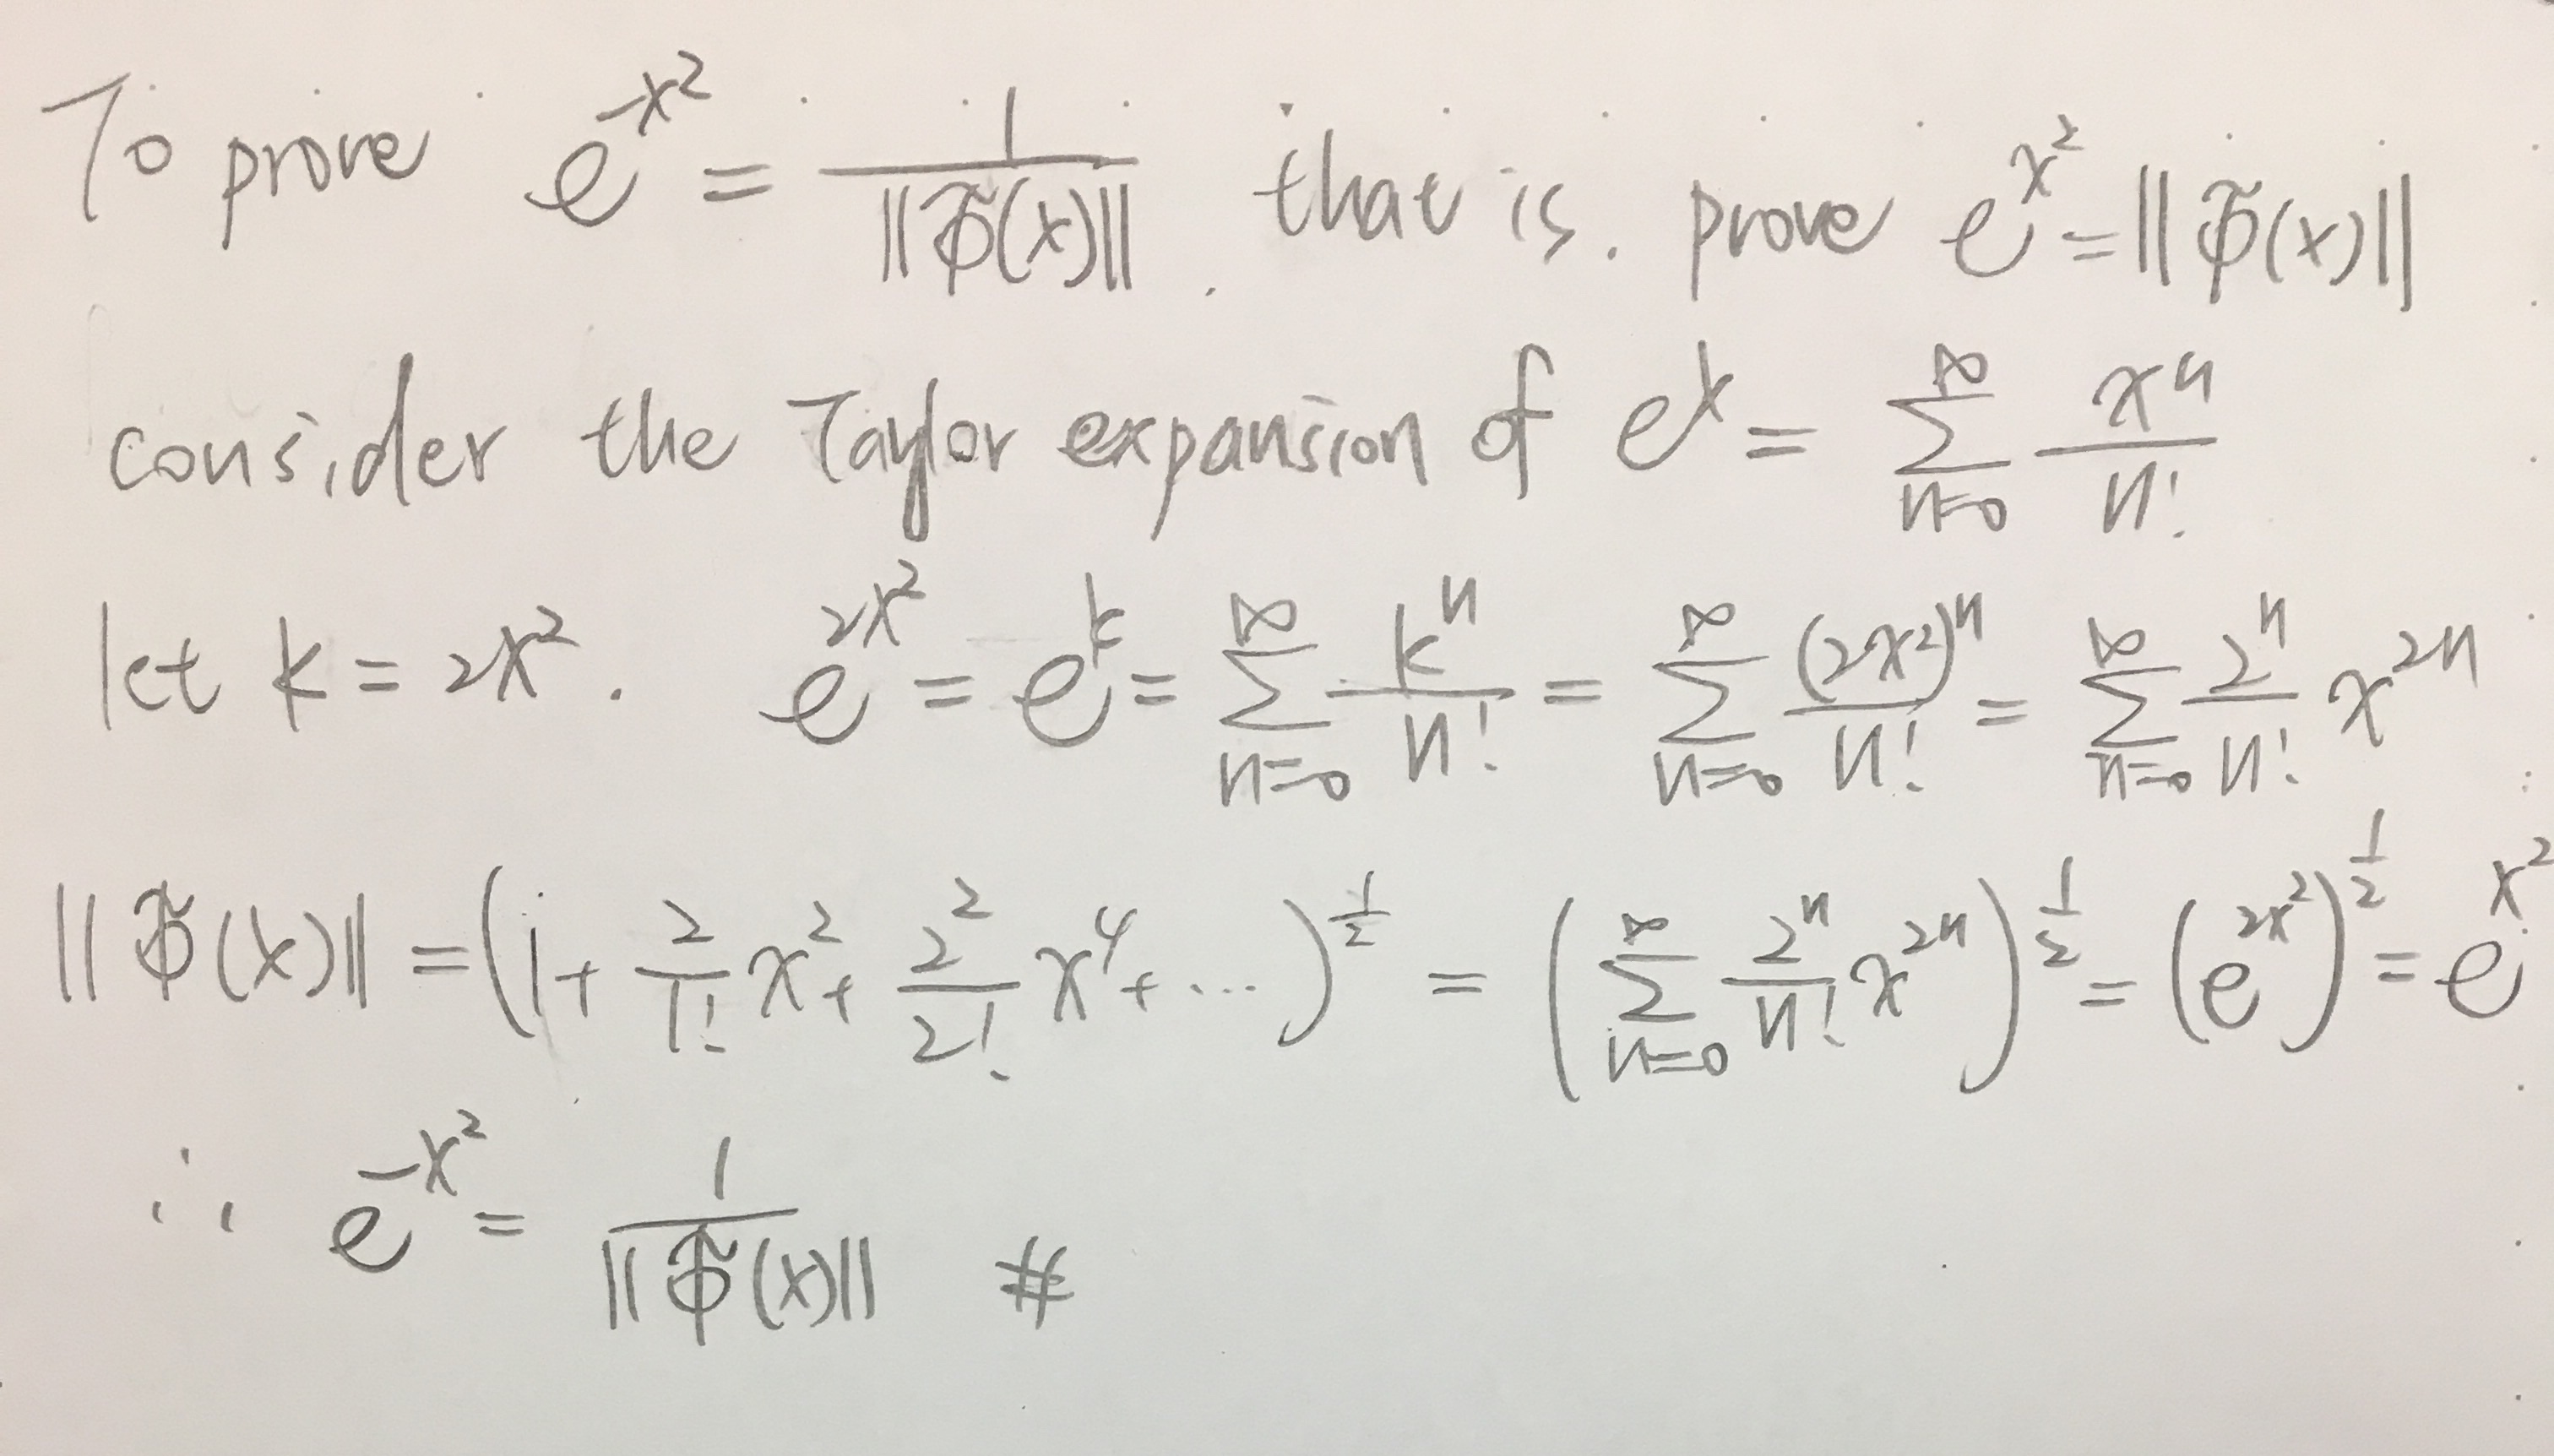 To prove e^{-x^2} = \frac{1}{||\tilde{\Phi}(x)||}. that is. prove e^{x^2} = ||\tilde{\Phi}(x)||
consider the Taylor expansion of e^x = \sum_{n=0}^{\infty} \frac{x^n}{n!}
let k = 2x^2. e^{2x^2} = e^k = \sum_{n=0}^{\infty} \frac{k^n}{n!} = \sum_{n=0}^{\infty} \frac{(2x^2)^n}{n!} = \sum_{n=0}^{\infty} \frac{2^n}{n!} x^{2n}
||\tilde{\Phi}(x)|| = (1 + \frac{2}{1!} x^2 + \frac{2^2}{2!} x^4 + ...)^{\frac{1}{2}} = (\sum_{n=0}^{\infty} \frac{2^n}{n!} x^{2n})^{\frac{1}{2}} = (e^{2x^2})^{\frac{1}{2}} = e^{x^2}
∴ e^{-x^2} = \frac{1}{||\tilde{\Phi}(x)||} #